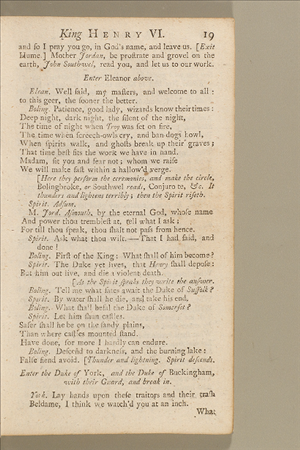 King HENRY VI. 19
and so I pray you go, in God's name, and leave us. [Exit
Hume.] Mother Jordan, be prostrate and grovel on the
earth, John Southwel, read you, and let us to our work.
Enter Eleanor above.
Elean. Well said, my masters, and welcome to all:
to this geer, the sooner the better.
Boling. Patience, good lady, wizards know their times:
Deep night, dark night, the silent of the night,
The time of night when Troy was set on fire,
The time when screech-owls cry, and ban-dogs howl,
When spirits walk, and ghosts break up their graves;
That time best fits the work we have in hand.
Madam, sit you and fear not; whom we raise
We will make fast within a hallow'd verge.
[Here they perform the ceremonies, and make the circle,
Bolingbroke, or Southwel read, Conjuro te, &c. It
thunders and lightens terribly; then the Spirit riseth.
Spirit. Adsum.
M. Jord. Asmuth, by the eternal God, whose name
And power thou tremblest at, tell what I ask;
For till thou speak, thou shalt not pass from hence.
Spirit. Ask what thou wilt.—That I had said, and
done!
Boling. First of the King: What shall of him become?
Spirit. The Duke yet lives, that Henry shall depose:
But him out live, and die a violent death.
[As the Spirit speaks they write the answer.
Boling. Tell me what fates await the Duke of Suffolk?
Spirit. By water shall he die, and take his end.
Boling. What shall befal the Duke of Somerset?
Spirit. Let him shun castles.
Safer shall he be on the sandy plains,
Than where castles mounted stand.
Have done, for more I hardly can endure.
Boling. Descend to darkness, and the burning lake:
False fiend avoid. [Thunder and lightning. Spirit descends.
Enter the Duke of York, and the Duke of Buckingham,
with their Guard, and break in.
York. Lay hands upon these traitors and their trash
Beldame, I think we watch'd you at an inch.
What